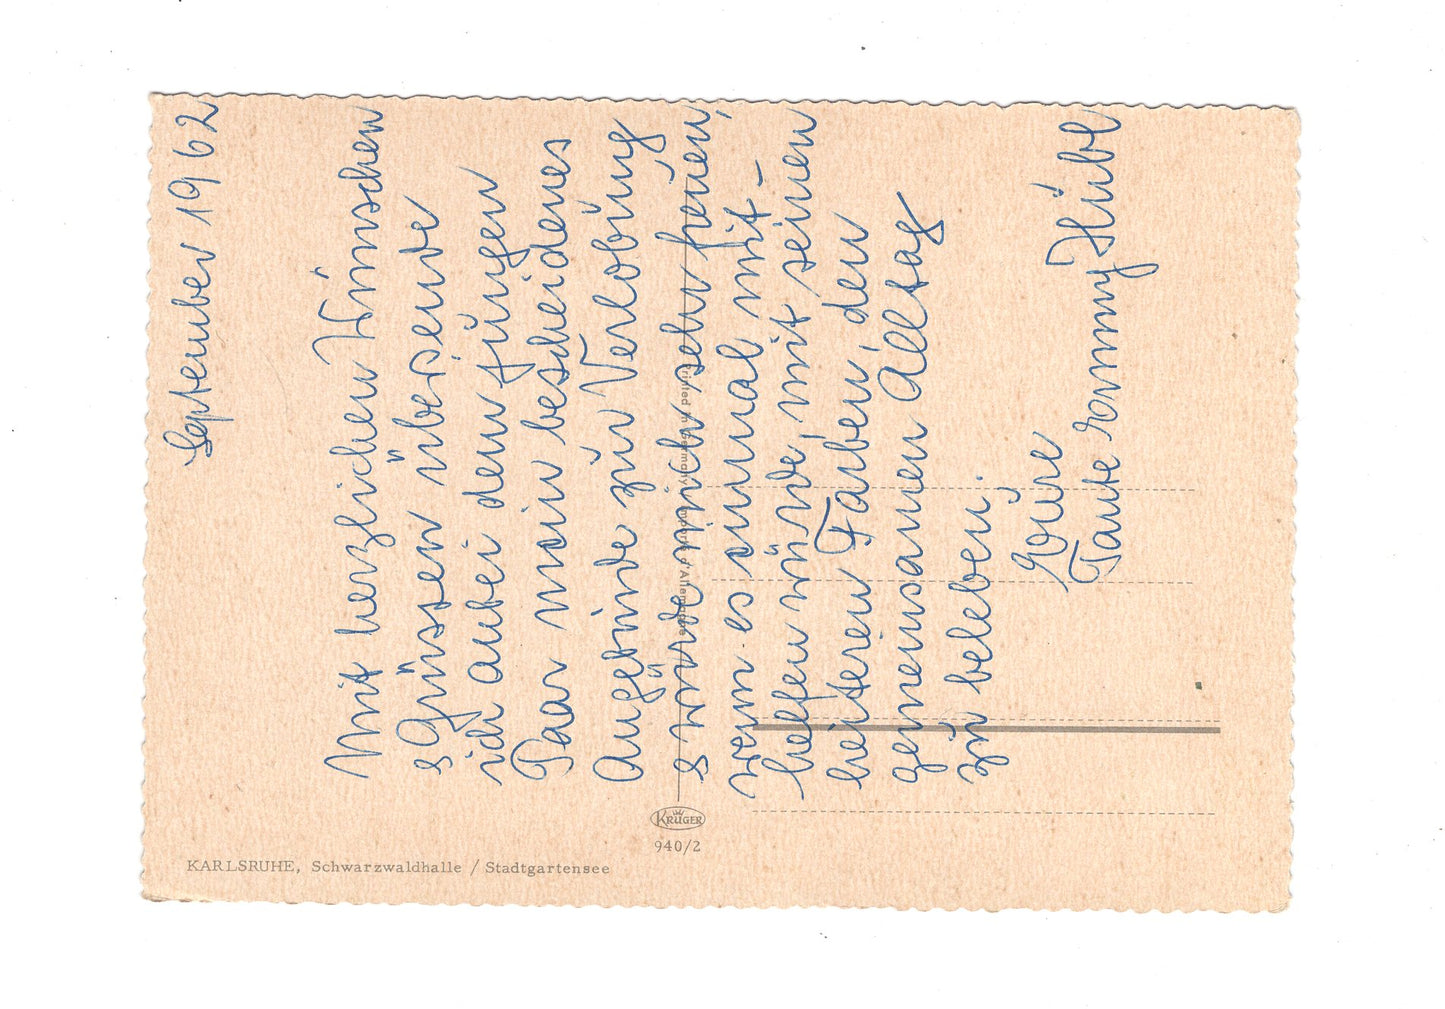 September 1962
Mit herzlichen Wünschen
& Grüssen übersende
ich anbei dem jungen
Paar mein bescheidenes
Angebinde zur Verlobung
& würde mich sehr freuen,
wenn es einmal mit-
helfen würde, mit seinen
heiteren Farben, den
gemeinsamen Alltag
zu beleben;
Eure
Tante Emmy Hübl
Printed in Germany Imprimé d'Allemagne
KRÜGER
940/2
KARLSRUHE, Schwarzwaldhalle / Stadtgartensee